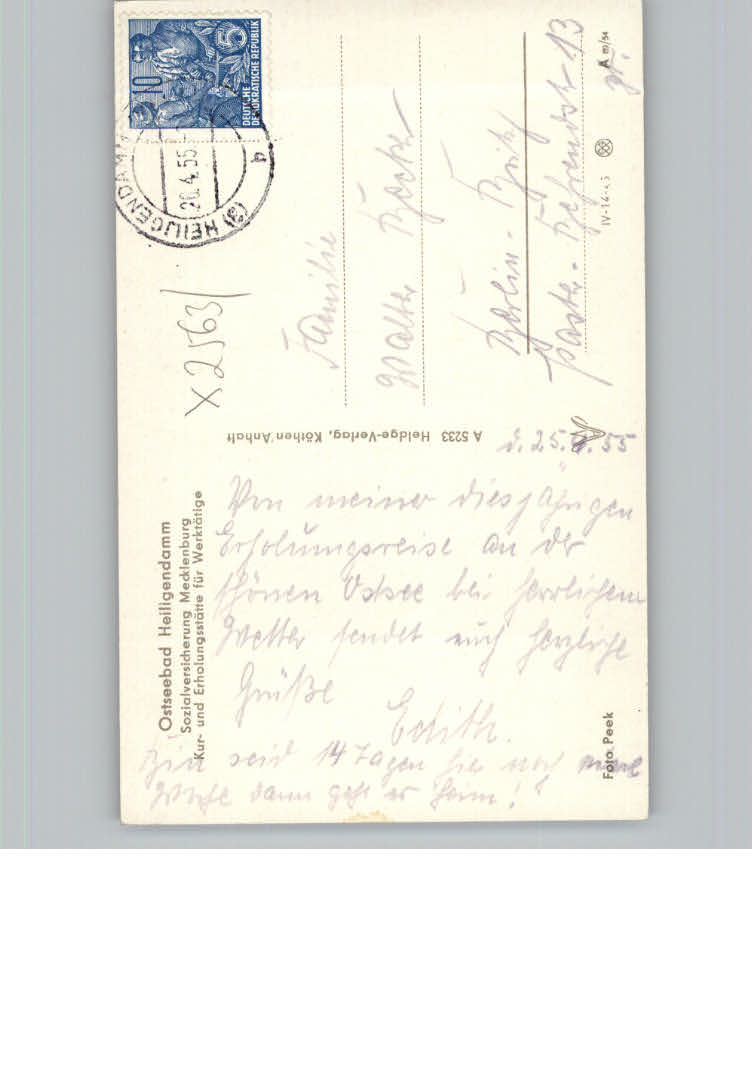 Ostseebad Heiligendamm
Sozialversicherung Mecklenburg
Kur- und Erholungsstätte für Werktätige
d. 25.4.55
Von meiner diesjährigen
Erholungsreise an der
schönen Ostsee bei herrlichem
Wetter sendet euch herzliche
Grüße
Edith.
Bin seid 14 Tagen hier noch eine
Woche dann geht es heim!
Foto Peek
A 5233 Heldge-Verlag, Köthen/Anhalt
X2563/
10
5
DEUTSCHE
DEMOKRATISCHE REPUBLIK
(3) HEILIGENDAMM
20.4.55
b
Familie
Walter
Berlin - Britz
13
IV-14-45
A m/54